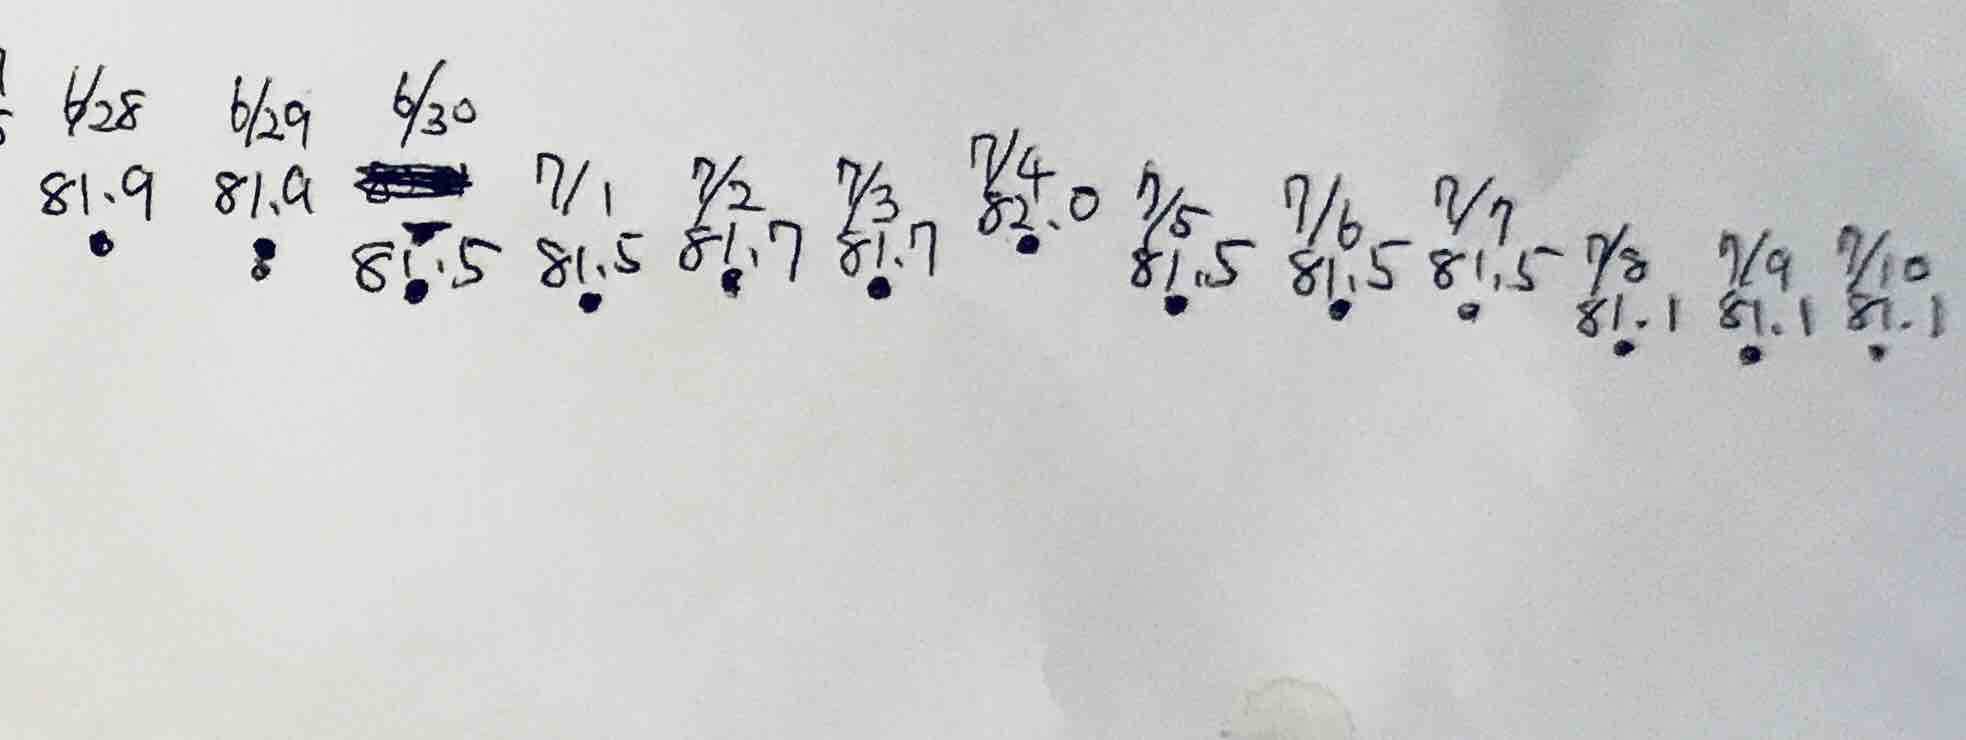 6/28 6/29 6/30
81.9 81.9 81.5
7/1 7/2 7/3 7/4 7/5 7/6 7/7 7/8 7/9 7/10
81.5 81.7 81.7 82.0 81.5 81.5 81.5 81.1 81.1 81.1